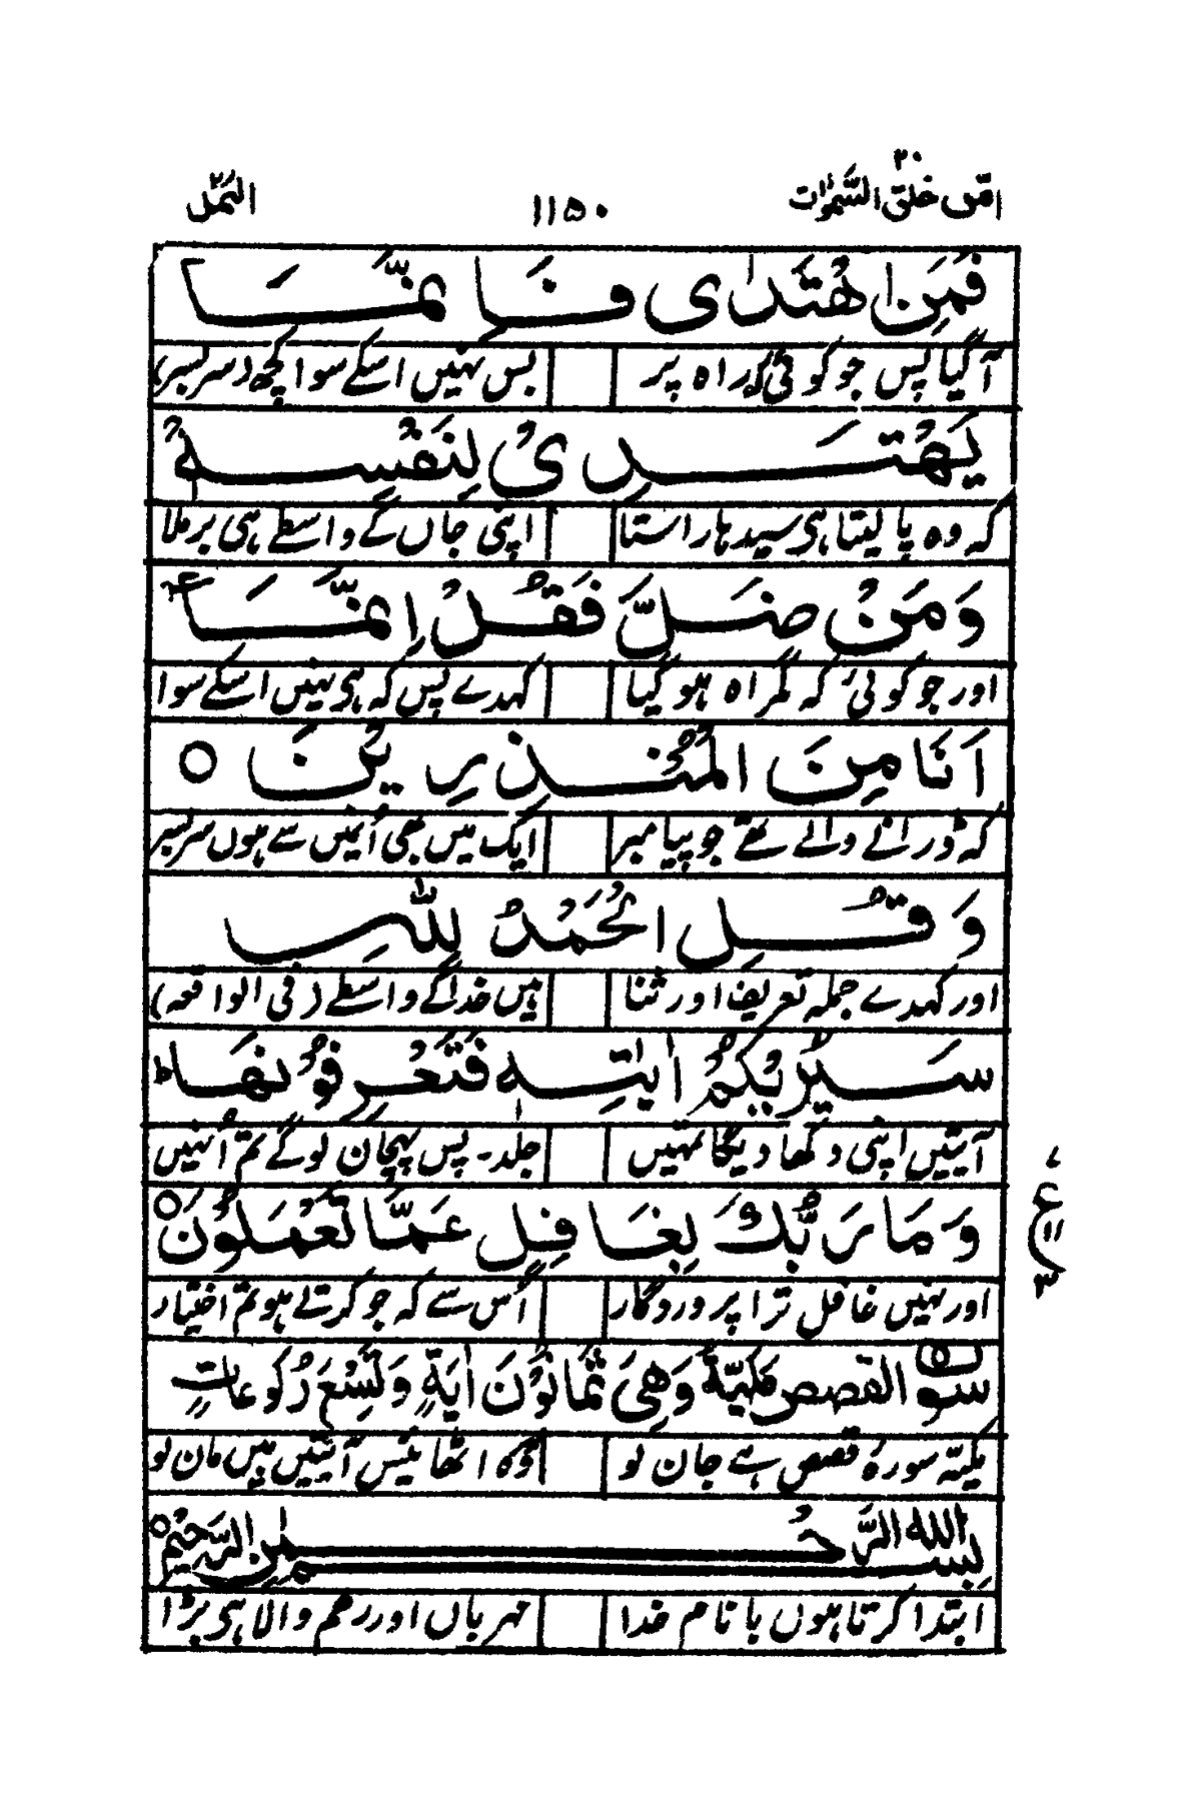 امّن خلق السّمٰوٰت ۲۰
۱۱۵۰
النّمل
فَمَنِ اهْتَدٰى فَاِنَّمَا
آ گیا پس جو کوئی کہ راہ پر بس نہیں اسکے سوا کچھ (سر بسر)
يَهْتَدِىْ لِنَفْسِهٖ
کہ وہ پا لیتا ہی سیدہا راستا اپنی جاں کے واسطے ہی برملا
وَمَنْ ضَلَّ فَقُلْ اِنَّمَا
اور جو کوئی کہ گمراہ ہو گیا کہدے پس کہ ہی نہیں اسکے سوا
اَنَا مِنَ الْمُنْذِرِيْنَ ○
کہ ڈرانے والے تھے جو پیامبر ایک میں بھی اُنمیں سے ہوں سر بسر
وَقُلِ الْحَمْدُ لِلّٰهِ
اور کہدے جملہ تعریف اور ثنا ہیں خدا کے واسطے (فی الواقعہ)
سَيُرِيْكُمْ اٰيٰتِهٖ فَتَعْرِفُوْنَهَا ؕ
آیتیں اپنی دکھا دیگا تمہیں جلد۔ پس پہچان لوگے تم اُنہیں
وَمَا رَبُّكَ بِغَافِلٍ عَمَّا تَعْمَلُوْنَ ○
ع
اور نہیں غافل ترا پروردگار اُس سے کہ جو کرتے ہو تم اختیار
سورة القصص مكيّة وَهِىَ ثَمَانُوْنَ اٰيَةً وَتِسْعُ رُكُوْعَاتٍ
مکیّہ سورۂ قصص ہے جان لو اٹھائیس آیتیں ہیں مان لو
بِسْمِ اللهِ الرَّحْمٰنِ الرَّحِيْمِ ○
ابتدا کرتا ہوں با نام خدا مہرباں اور رحم والا ہی بڑا